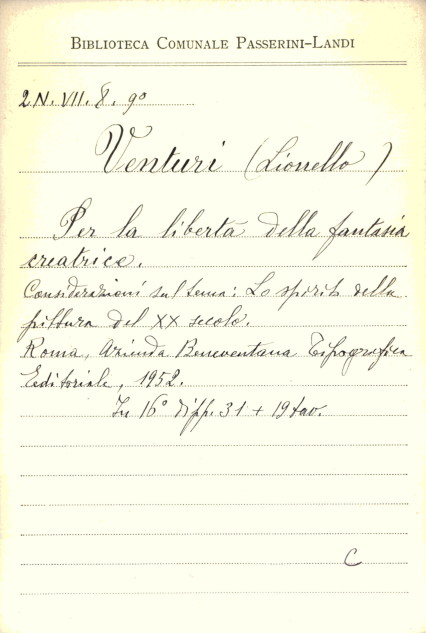 BIBLIOTECA COMUNALE PASSERINI-LANDI
2N. VII. 8. 90
Venturi (Lionello)
Per la libertà della fantasia
creatrice.
Considerazioni sul tema: Lo spirito della
pittura del XX secolo.
Roma, Azienda Beneventana Tipografica
Editoriale, 1952.
In 16° di pp. 31 + 19 tav.
C